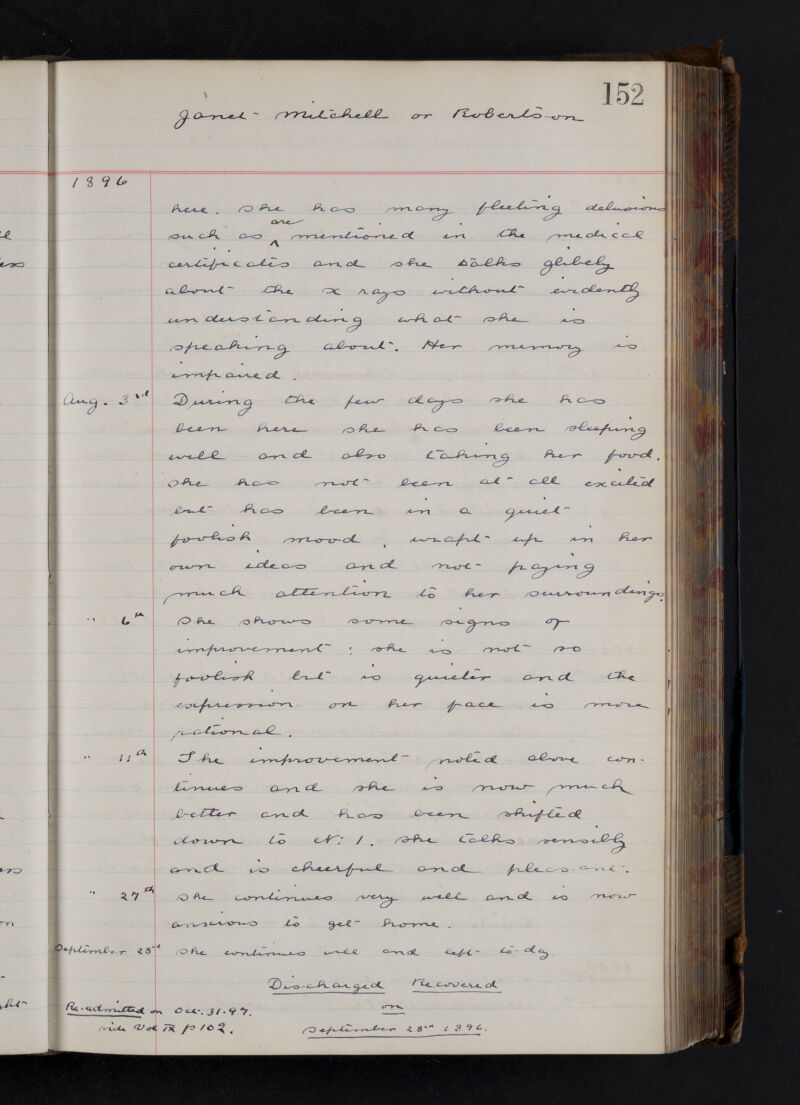 152
Janet Mitchell or Robertson
1896
here. She has many fleeting delusions
such as are mentioned in the medical
certificates and she talks glibely
about the x rays without evidently
understanding what she is
speaking about. Her memory is
impaired.
Aug. 3rd During the few days she has
been here she has been sleeping
well and also taking her food.
She has not been at all excited
but has been in a quiet
foolish mood, wrapt up in her
own ideas and not paying
much attention to her surroundings.
" 6th She shows some signs of
improvement: she is not so
foolish but is quieter and the
expression on her face is more
rational.
" 11th The improvement noted above con-
tinues and she is now much
better and has been shifted
down to N: 1. She talks sensibly
and is cheerful and pleasant.
" 27th She continues very well and is now
anxious to get home.
September 28th She continues well and left to-day.
Discharged Recovered
Re-admitted on Oct. 31. 97. on
vide Vol IX p 102. September 28th 1896.